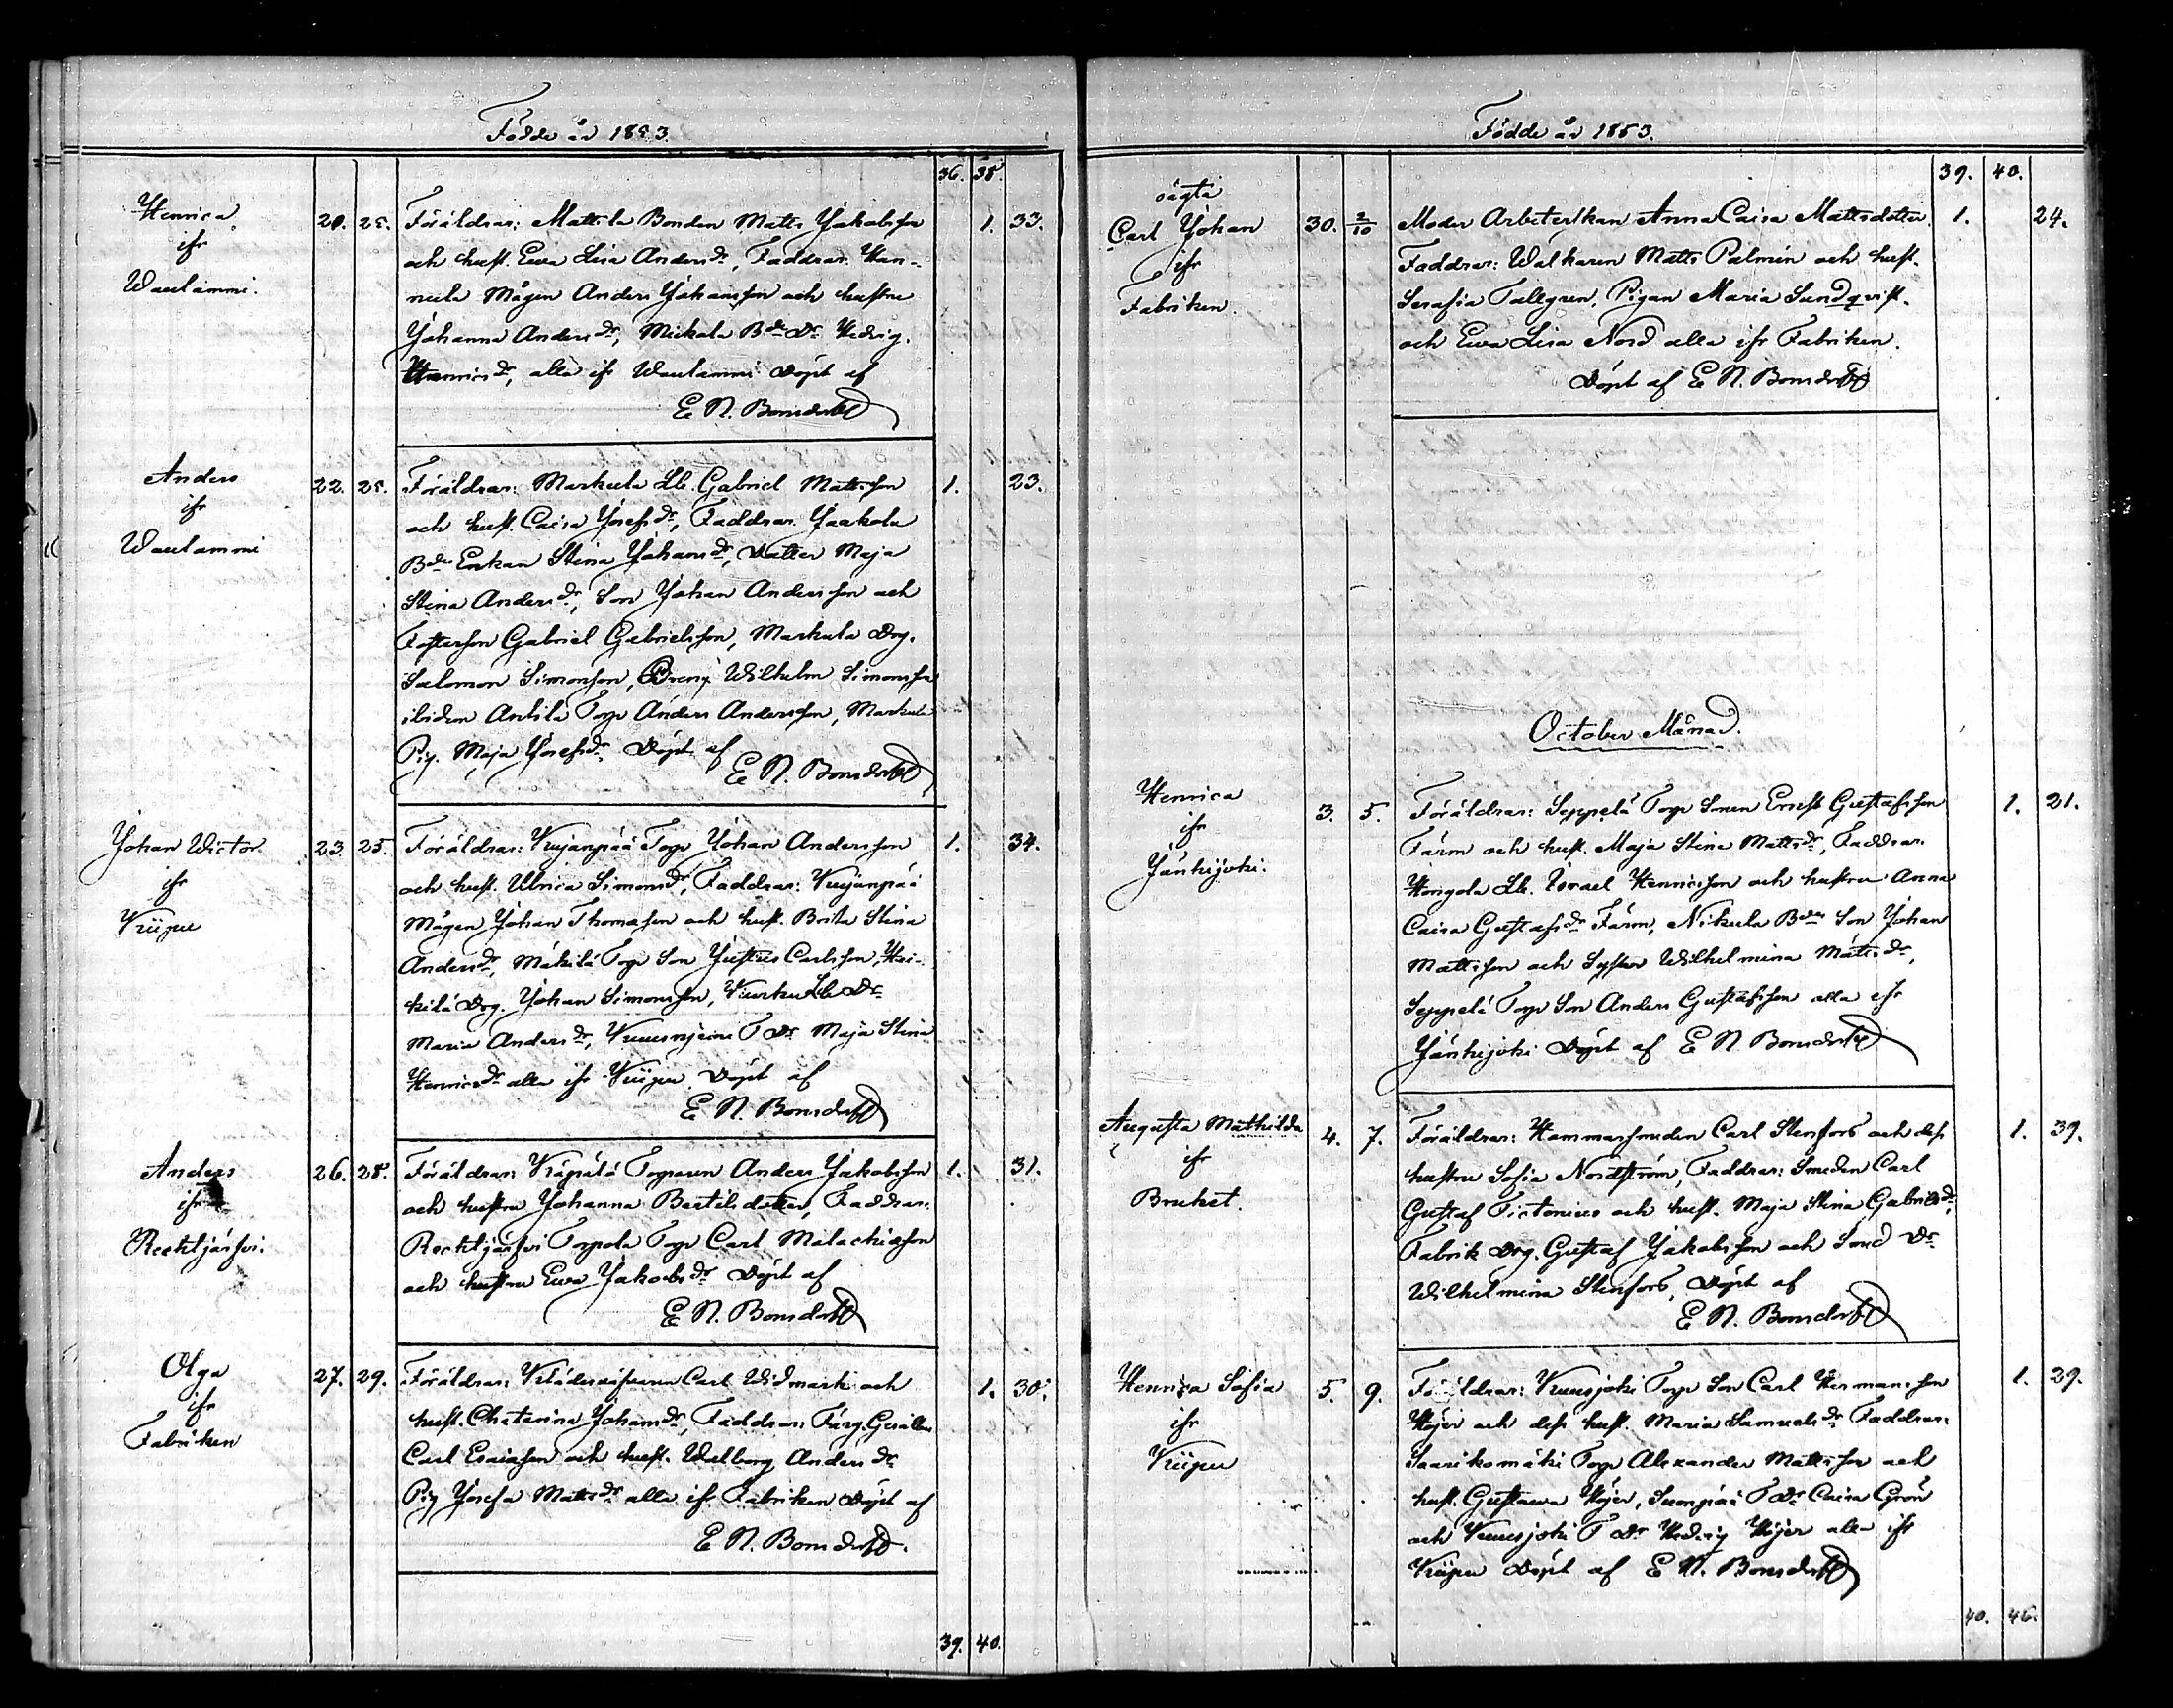 Födde år 1853.
36. 38.
Henrica
ifr
Waulammi.
20. 25.
Föräldrar: Mattila Bonden Matts Jakobsson
och hust. Ewa Lisa Andersdr, Faddrar: Han-
nula Mågen Anders Johansson och hustru
Johanna Andersdr, Mickola Bde Dr Hedvig
Henricsdr, alla ifr Waulammi Döpt af
E N. Bonsdorff
1. 33.
Anders
ifr
Waulammi
22. 25.
Föräldrar: Markula Lb. Gabriel Mattsson
och hust. Caisa Josefsdr, Faddrar Jaakola
Bde Enkan Stina Johansdr, Dotter Maja
Stina Andersdr, Son Johan Andersson och
Fosterson Gabriel Gabrielsson, Markula Drg.
Salomon Simonsson, Dreng Wilhelm Simonsson
ibidem Antila Torp Anders Andersson, Markula
Pig. Maja Josefsdr Döpt af
E N. Bonsdorff
1. 23.
Johan Victor
ifr
Wiipu
23 25.
Föräldrar: Kujanpää Torp Johan Andersson
och hust. Ulrica Simonsdr, Faddrar: Kujanpää
Mågen Johan Thomasson och hust. Brita Stina
Andersdr, Mäkilä Torp Son Justus Carlsson, Hei-
kilä Drg. Johan Simonsson, Lb Dr
Maria Andersdr, T Dr Maja Stina
Henricsdr alla ifr Wiipu Döpt af
E N. Bonsdorff
1. 34.
Anders
ifr
Reckijärfvi.
26. 28.
Föräldrar: Torparen Anders Jakobsson
och hustru Johanna Bertilsdotter, Faddrar:
Reckijärfvi Torpola Torp Carl Malachiasson
och hustru Ewa Jakobsdr Döpt af
E N. Bonsdorff
1. 31.
Olga
ifr
Fabriken
27. 29.
Föräldrar: Klädesväfvaren Carl Widmark och
hust. Chatarina Johansdr, Faddrar: Färg. Gesällen
Carl Esaiasson och hust. Walborg Andersdr
Pig Josefa Mattsdr alla ifr Fabriken Döpt af
E N. Bonsdorff.
1. 30.
39. 40.
Födde år 1853.
39. 40.
oägta
Carl Johan
ifr
Fabriken.
30. 2/10
Moder Arbeterskan Anna Caisa Mattsdotter
Faddrar: Walkaren Matts Palmén och hust.
Serafia Tallgren, Pigan Maria Sundqvist.
och Ewa Lisa Nord alla ifr Fabriken.
Döpt af E N. Bonsdorff
1. 24.
October Månad.
Henrica
ifr
Jänhijoki.
3. 5.
Föräldrar: Seppelä Torp Sonen Ernst Gustafsson
Färm och hust. Maja Stina Mattsdr, Faddrar:
Hongola Lb. Israel Henricsson och hustru Anna
Caisa Gustafsdr Färm, Nikula Bdes Son Johan
Mattsson och Syster Wilhelmina Mattsdr,
Seppelä Torp Son Anders Gustafsson alla ifr
Jänhijoki Döpt af E N. Bonsdorff
1. 21.
Augusta Mathilda
ifr
Bruket.
4. 7.
Föräldrar: Hammarsmeden Carl Stenfors och dess
hustru Sofia Nordström, Faddrar: Smeden Carl
Gustaf Fictonius och hust. Maja Stina Gabrielsdr,
Fabrik Drg. Gustaf Jakobsson och Smed Dr
Wilhelmina Stenfors, Döpt af
E N. Bonsdorff
1. 39.
Henrica Sofia
ifr
Wiipu
5 9.
Föräldrar: Kuusjoki Torp Son Carl Hermansson
Höjer och dess hust. Maria Samuelsdr Faddrar:
Saarikomäki Torp Alexander Mattsson och
hust. Gustawa Höjer, Suonpää T Dr Caisa Grön
och Kuusjoki T Dr Hedvig Höjer alla ifr
Wiipu Döpt af E N. Bonsdorff
1. 29.
40. 46.